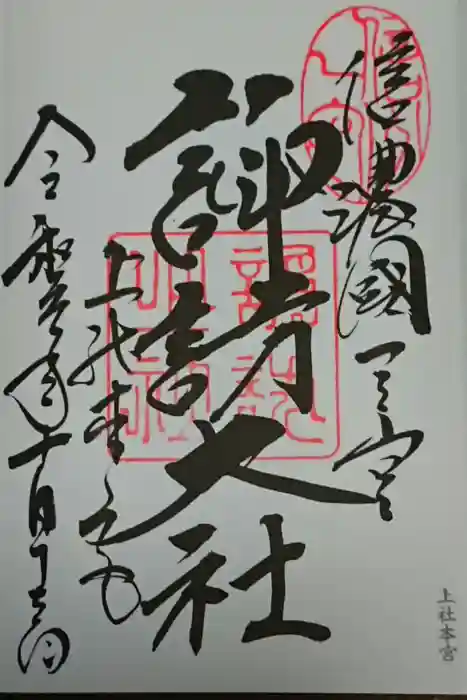 信濃國一之宮
諏訪大社
上社本宮
令和元年十月十七日
上社本宮